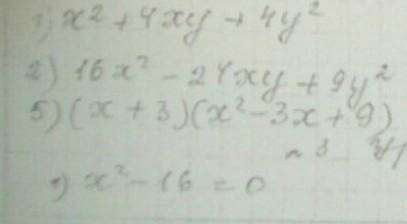 1) x² + 4xy + 4y²
2) 16x² - 24xy + 9y²
5) (x + 3)(x² - 3x + 9)
x² - 16 = 0